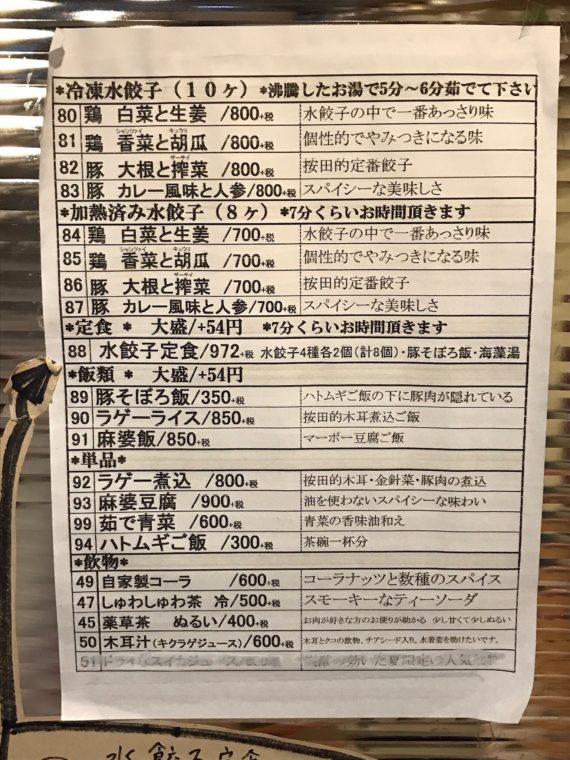 *冷凍水餃子(10ヶ) *沸騰したお湯で5分〜6分茹でて下さい
80 鶏 白菜と生姜 /800+税 水餃子の中で一番あっさり味
81 鶏 香菜(シャンツァイ)と胡瓜(キュウリ) /800+税 個性的でやみつきになる味
82 豚 大根と搾菜(ザーサイ) /800+税 按田的定番餃子
83 豚 カレー風味と人参/800+税 スパイシーな美味しさ
*加熱済み水餃子(8ヶ) *7分くらいお時間頂きます
84 鶏 白菜と生姜 /700+税 水餃子の中で一番あっさり味
85 鶏 香菜(シャンツァイ)と胡瓜(キュウリ) /700+税 個性的でやみつきになる味
86 豚 大根と搾菜(ザーサイ) /700+税 按田的定番餃子
87 豚 カレー風味と人参/700+税 スパイシーな美味しさ
*定食 * 大盛/+54円 *7分くらいお時間頂きます
88 水餃子定食/972+税 水餃子4種各2個(計8個)・豚そぼろ飯・海藻湯
*飯類 * 大盛/+54円
89 豚そぼろ飯/350+税 ハトムギご飯の下に豚肉が隠れている
90 ラゲーライス/850+税 按田的木耳煮込ご飯
91 麻婆飯/850+税 マーボー豆腐ご飯
*単品*
92 ラゲー煮込 /800+税 按田的木耳・金針菜・豚肉の煮込
93 麻婆豆腐 /900+税 油を使わないスパイシーな味わい
99 茹で青菜 /600+税 青菜の香味油和え
94 ハトムギご飯 /300+税 茶碗一杯分
*飲物*
49 自家製コーラ /600+税 コーラナッツと数種のスパイス
47 しゅわしゅわ茶 冷/500+税 スモーキーなティーソーダ
45 薬草茶 ぬるい/400+税 お肉が好きな方のお便りが助かる 少し甘くて少しぬるい
50 木耳汁(キクラゲジュース)/600+税 木耳とクコの飲物、チアシード入り。水着姿を助けたいです。
51
水餃子定食